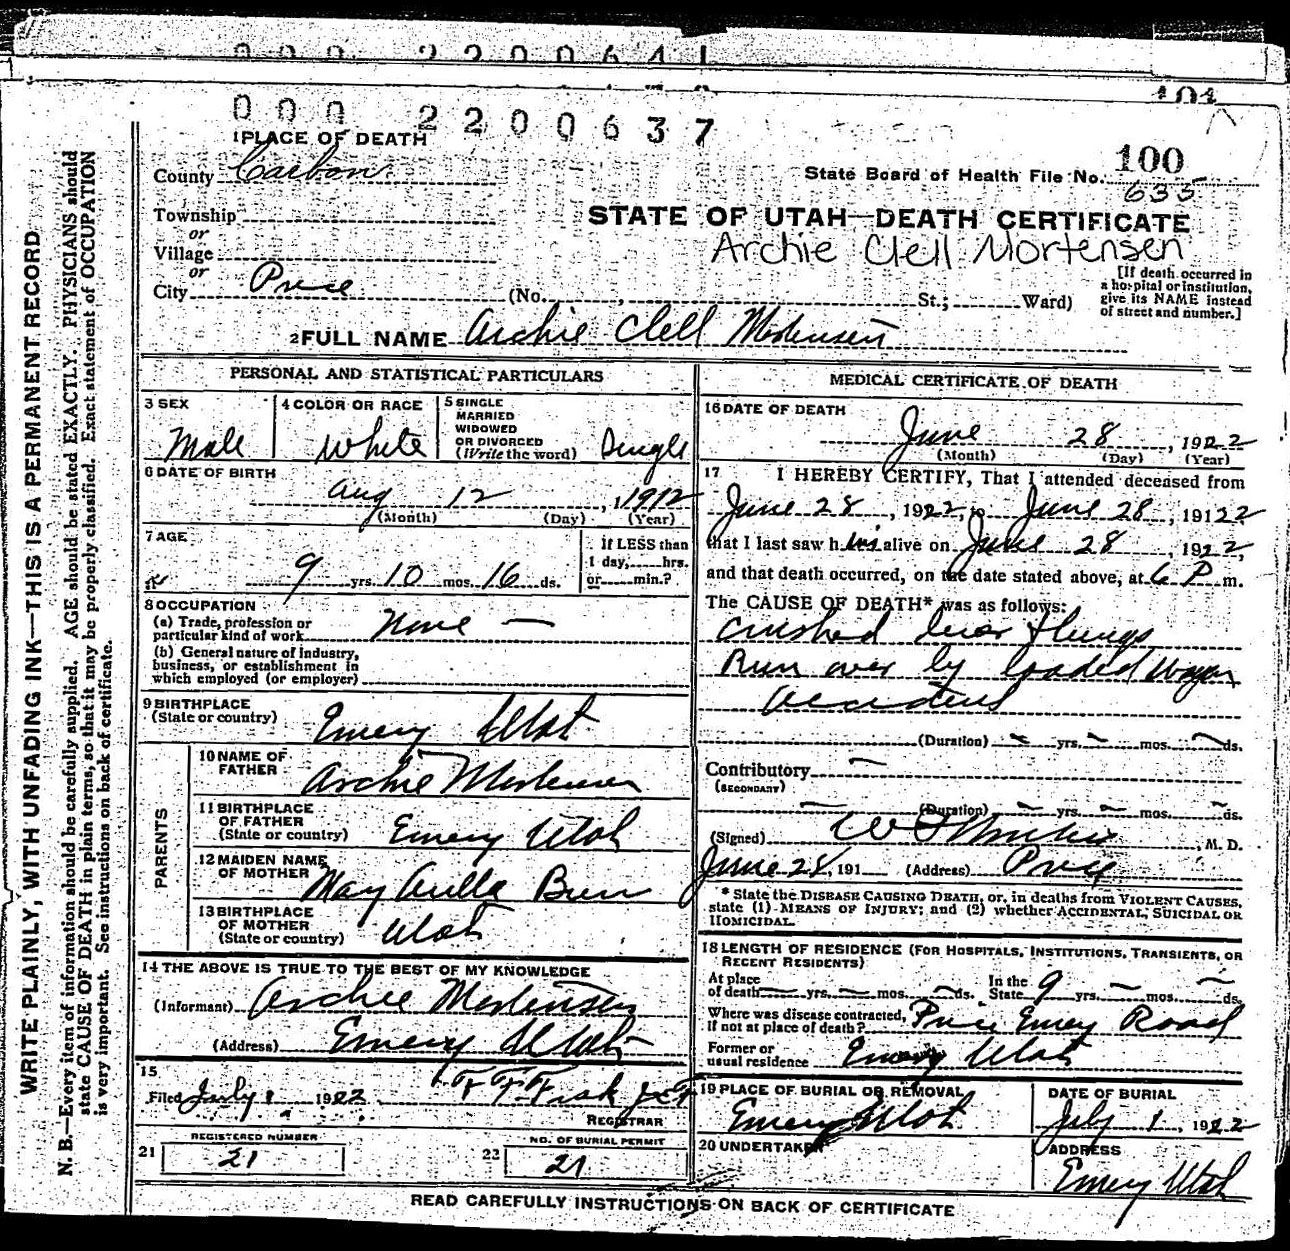 000 2200641
101
000 2200637
1 PLACE OF DEATH
County Carbon
State Board of Health File No. 100
635
Township
or
Village
or
City Price
STATE OF UTAH—DEATH CERTIFICATE
Archie Clell Mortensen
[If death occurred in
a hospital or institution,
give its NAME instead
of street and number.]
(No. , St.; Ward)
2 FULL NAME Archie Clell Mortensen
PERSONAL AND STATISTICAL PARTICULARS
3 SEX
Male
4 COLOR OR RACE
White
5 SINGLE
MARRIED
WIDOWED
OR DIVORCED
(Write the word) Single
6 DATE OF BIRTH
Aug 12, 1912
(Month) (Day) (Year)
7 AGE
9 yrs. 10 mos. 16 ds.
If LESS than
1 day, hrs.
or min.?
8 OCCUPATION
(a) Trade, profession or
particular kind of work None —
(b) General nature of industry,
business, or establishment in
which employed (or employer)
9 BIRTHPLACE
(State or country) Emery Utah
PARENTS
10 NAME OF
FATHER Archie Mortensen
11 BIRTHPLACE
OF FATHER
(State or country) Emery Utah
12 MAIDEN NAME
OF MOTHER May
13 BIRTHPLACE
OF MOTHER
(State or country) Utah
14 THE ABOVE IS TRUE TO THE BEST OF MY KNOWLEDGE
(Informant) Archie Mortensen
(Address) Emery Utah
15
Filed July 1 1922
REGISTRAR
21 REGISTERED NUMBER
21
22 NO. OF BURIAL PERMIT
21
MEDICAL CERTIFICATE OF DEATH
16 DATE OF DEATH
June 28, 1922
(Month) (Day) (Year)
17 I HEREBY CERTIFY, That I attended deceased from
June 28, 1922, to June 28, 19122
that I last saw him alive on June 28, 1922,
and that death occurred, on the date stated above, at 6 P m.
The CAUSE OF DEATH* was as follows:
Crushed liver & lungs
Run over by loaded wagon
Accident
(Duration) — yrs. — mos. — ds.
Contributory —
(SECONDARY)
— (Duration) — yrs. — mos. — ds.
(Signed) , M. D.
June 28, 191 (Address) Price
* State the DISEASE CAUSING DEATH, or, in deaths from VIOLENT CAUSES,
state (1) MEANS OF INJURY; and (2) whether ACCIDENTAL, SUICIDAL OR
HOMICIDAL.
18 LENGTH OF RESIDENCE (FOR HOSPITALS, INSTITUTIONS, TRANSIENTS, OR
RECENT RESIDENTS)
At place
of death — yrs. — mos. — ds. In the State 9 yrs. — mos. — ds.
Where was disease contracted,
if not at place of death? Price Emery Road
Former or
usual residence Emery Utah
19 PLACE OF BURIAL OR REMOVAL
Emery Utah
DATE OF BURIAL
July 1, 1922
20 UNDERTAKER
ADDRESS
Emery Utah
READ CAREFULLY INSTRUCTIONS ON BACK OF CERTIFICATE
WRITE PLAINLY, WITH UNFADING INK—THIS IS A PERMANENT RECORD
N. B.—Every item of information should be carefully supplied. AGE should be stated EXACTLY. PHYSICIANS should
state CAUSE OF DEATH in plain terms, so that it may be properly classified. Exact statement of OCCUPATION
is very important. See instructions on back of certificate.